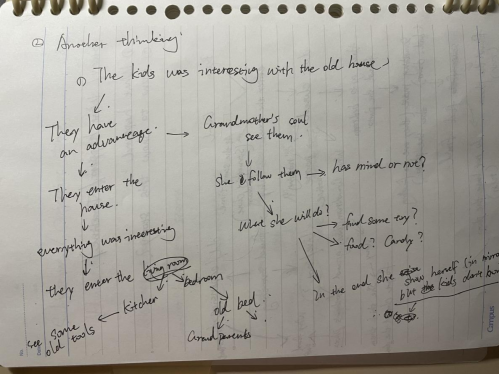 ② Another thinking:
① The kids was interesting with the old house,
They have
an advanceage.
Grandmother's soul
see them.
They enter the
house.
She follow them → has mind or not?
everything was interesting
What she will do?
find some toy?
food? Candy?
they enter the living room
bedroom
kitchen
In the end she show herself (in mirro
but the kids don't
see some
old tools
old bed
Grandparents
Campus